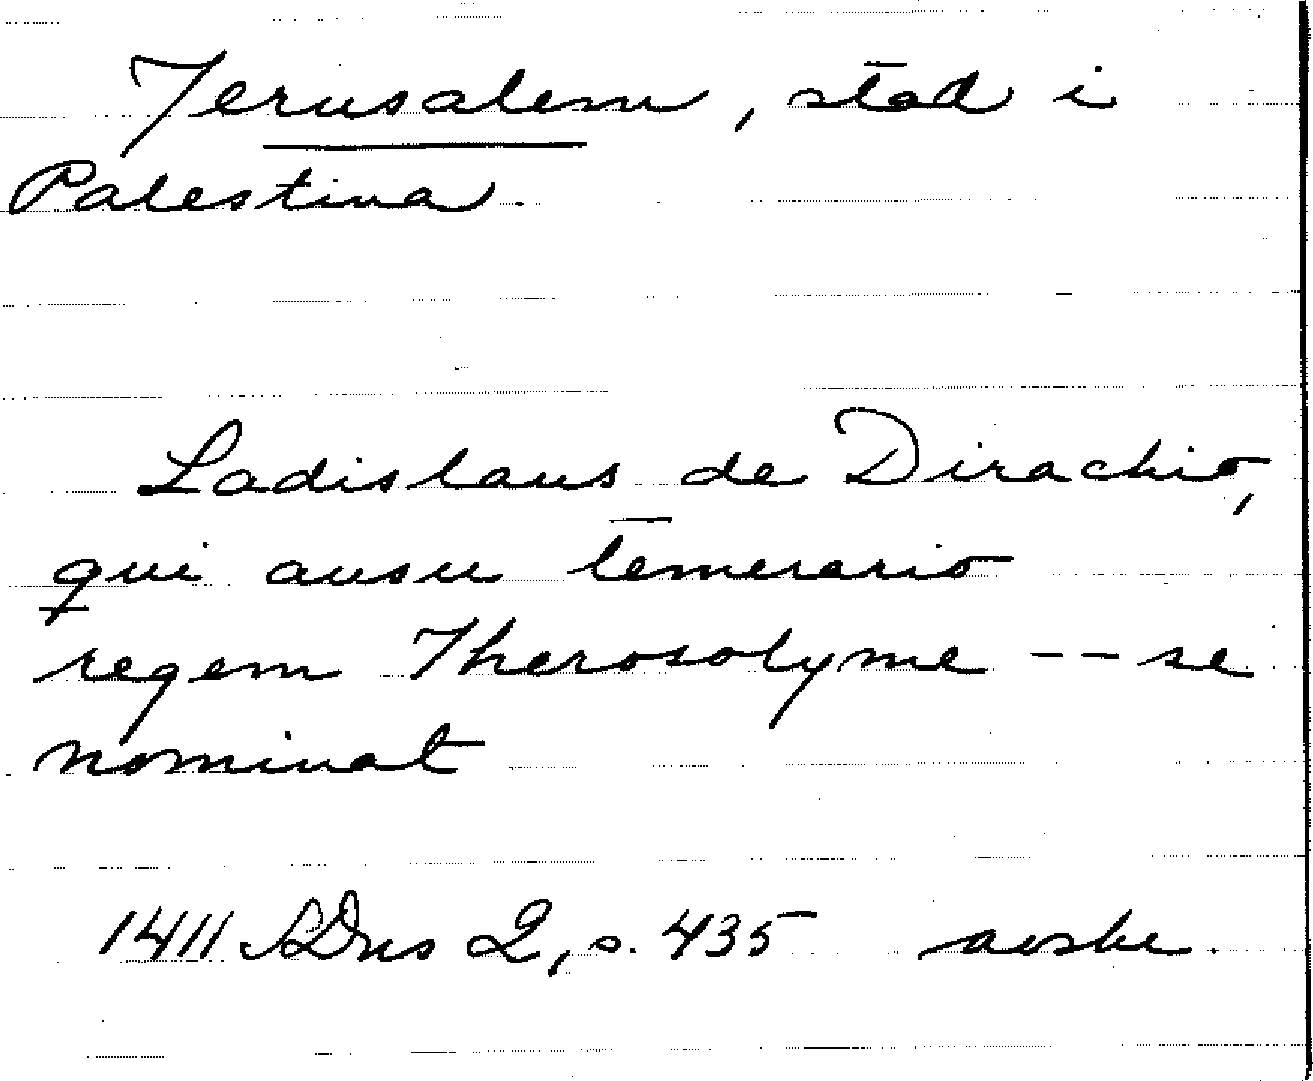 Jerusalem, stad i
Palestina.
Ladislaus de Dirachio,
qui ausu temerario
regem Jherosolyme -- se
nominat
1411 SDns 2, s. 435 avskr.